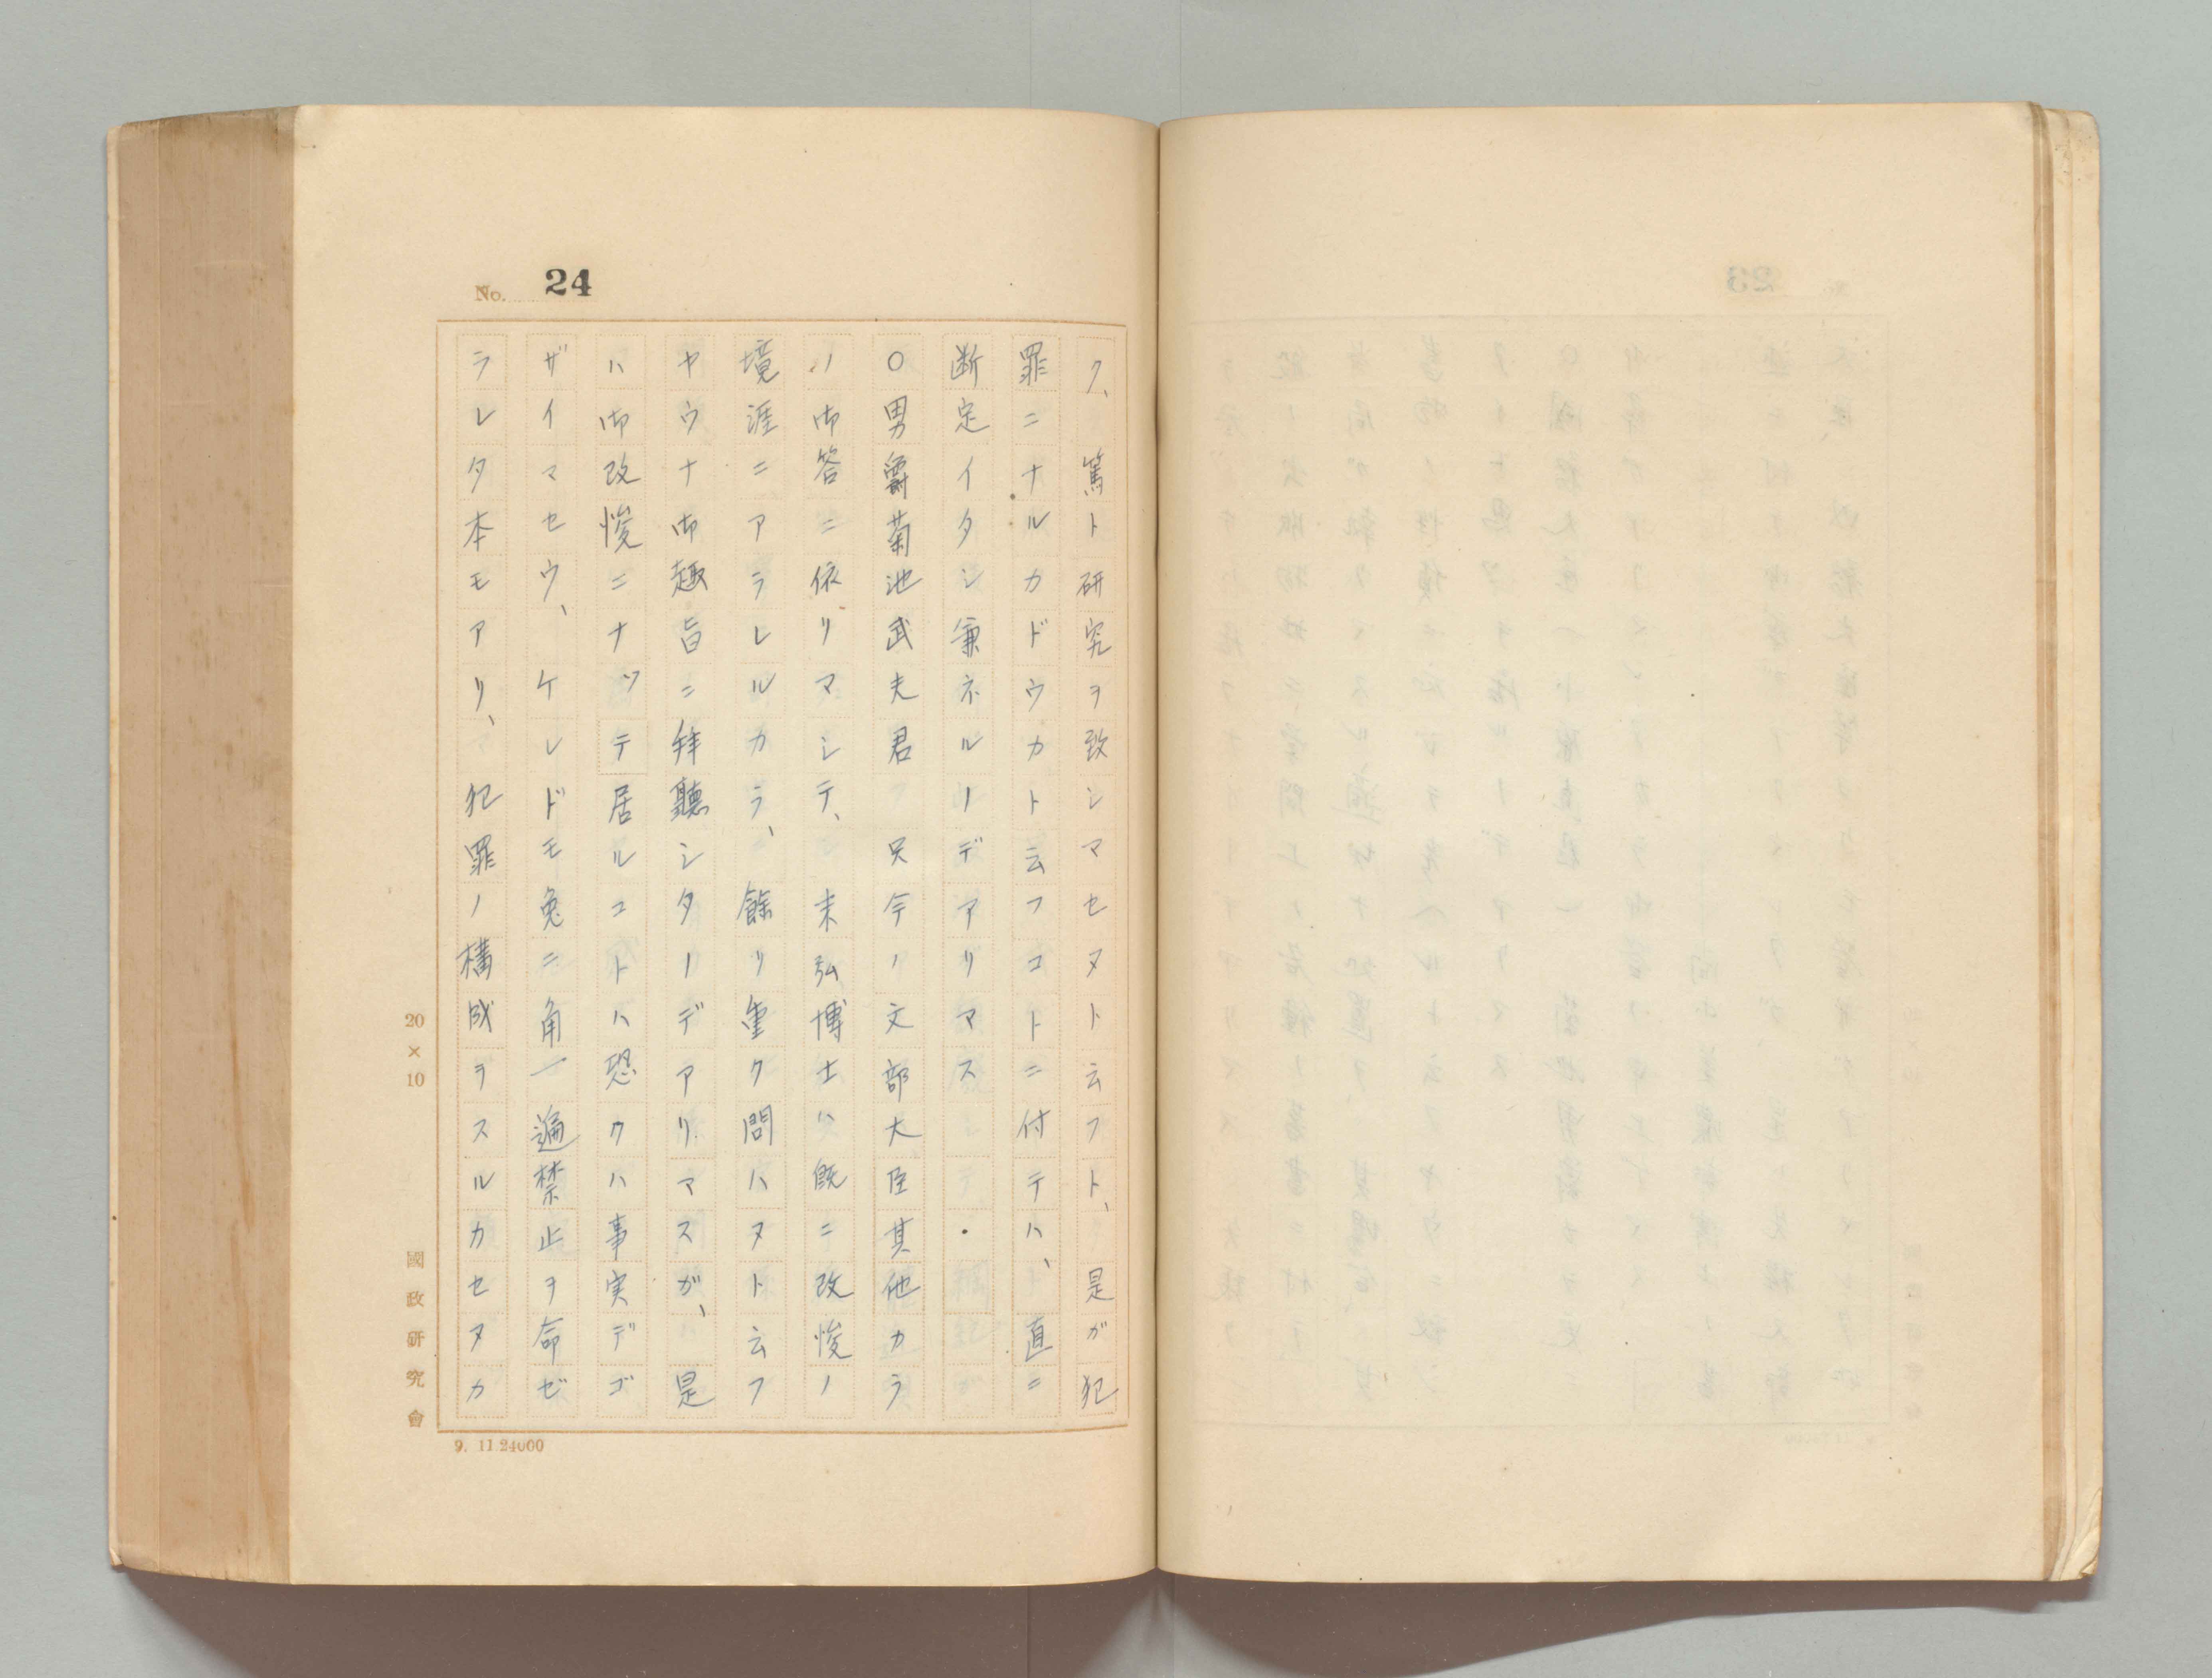 No. 24
ク、篤ト研究ヲ致シマセヌト云フト、是ガ犯
罪ニナルカドウカト云フコトニ付テハ、直ニ
断定イタシ兼ネルノデアリマス
○男爵菊池武夫君 只今ノ文部大臣其他カラ
ノ御答ニ依リマシテ、末弘博士ハ既ニ改悛ノ
境涯ニアラレルカラ、餘リ重ク問ハヌト云フ
ヤウナ御趣旨ニ拜聽シタノデアリマスガ、是
ハ御改悛ニナツテ居ルコトハ恐クハ事実デゴ
ザイマセウ、ケレドモ兔ニ角一遍禁止ヲ命ゼ
ラレタ本モアリ、犯罪ノ構成ヲスルカセヌカ
20×10 國政研究會
9. 11.24000